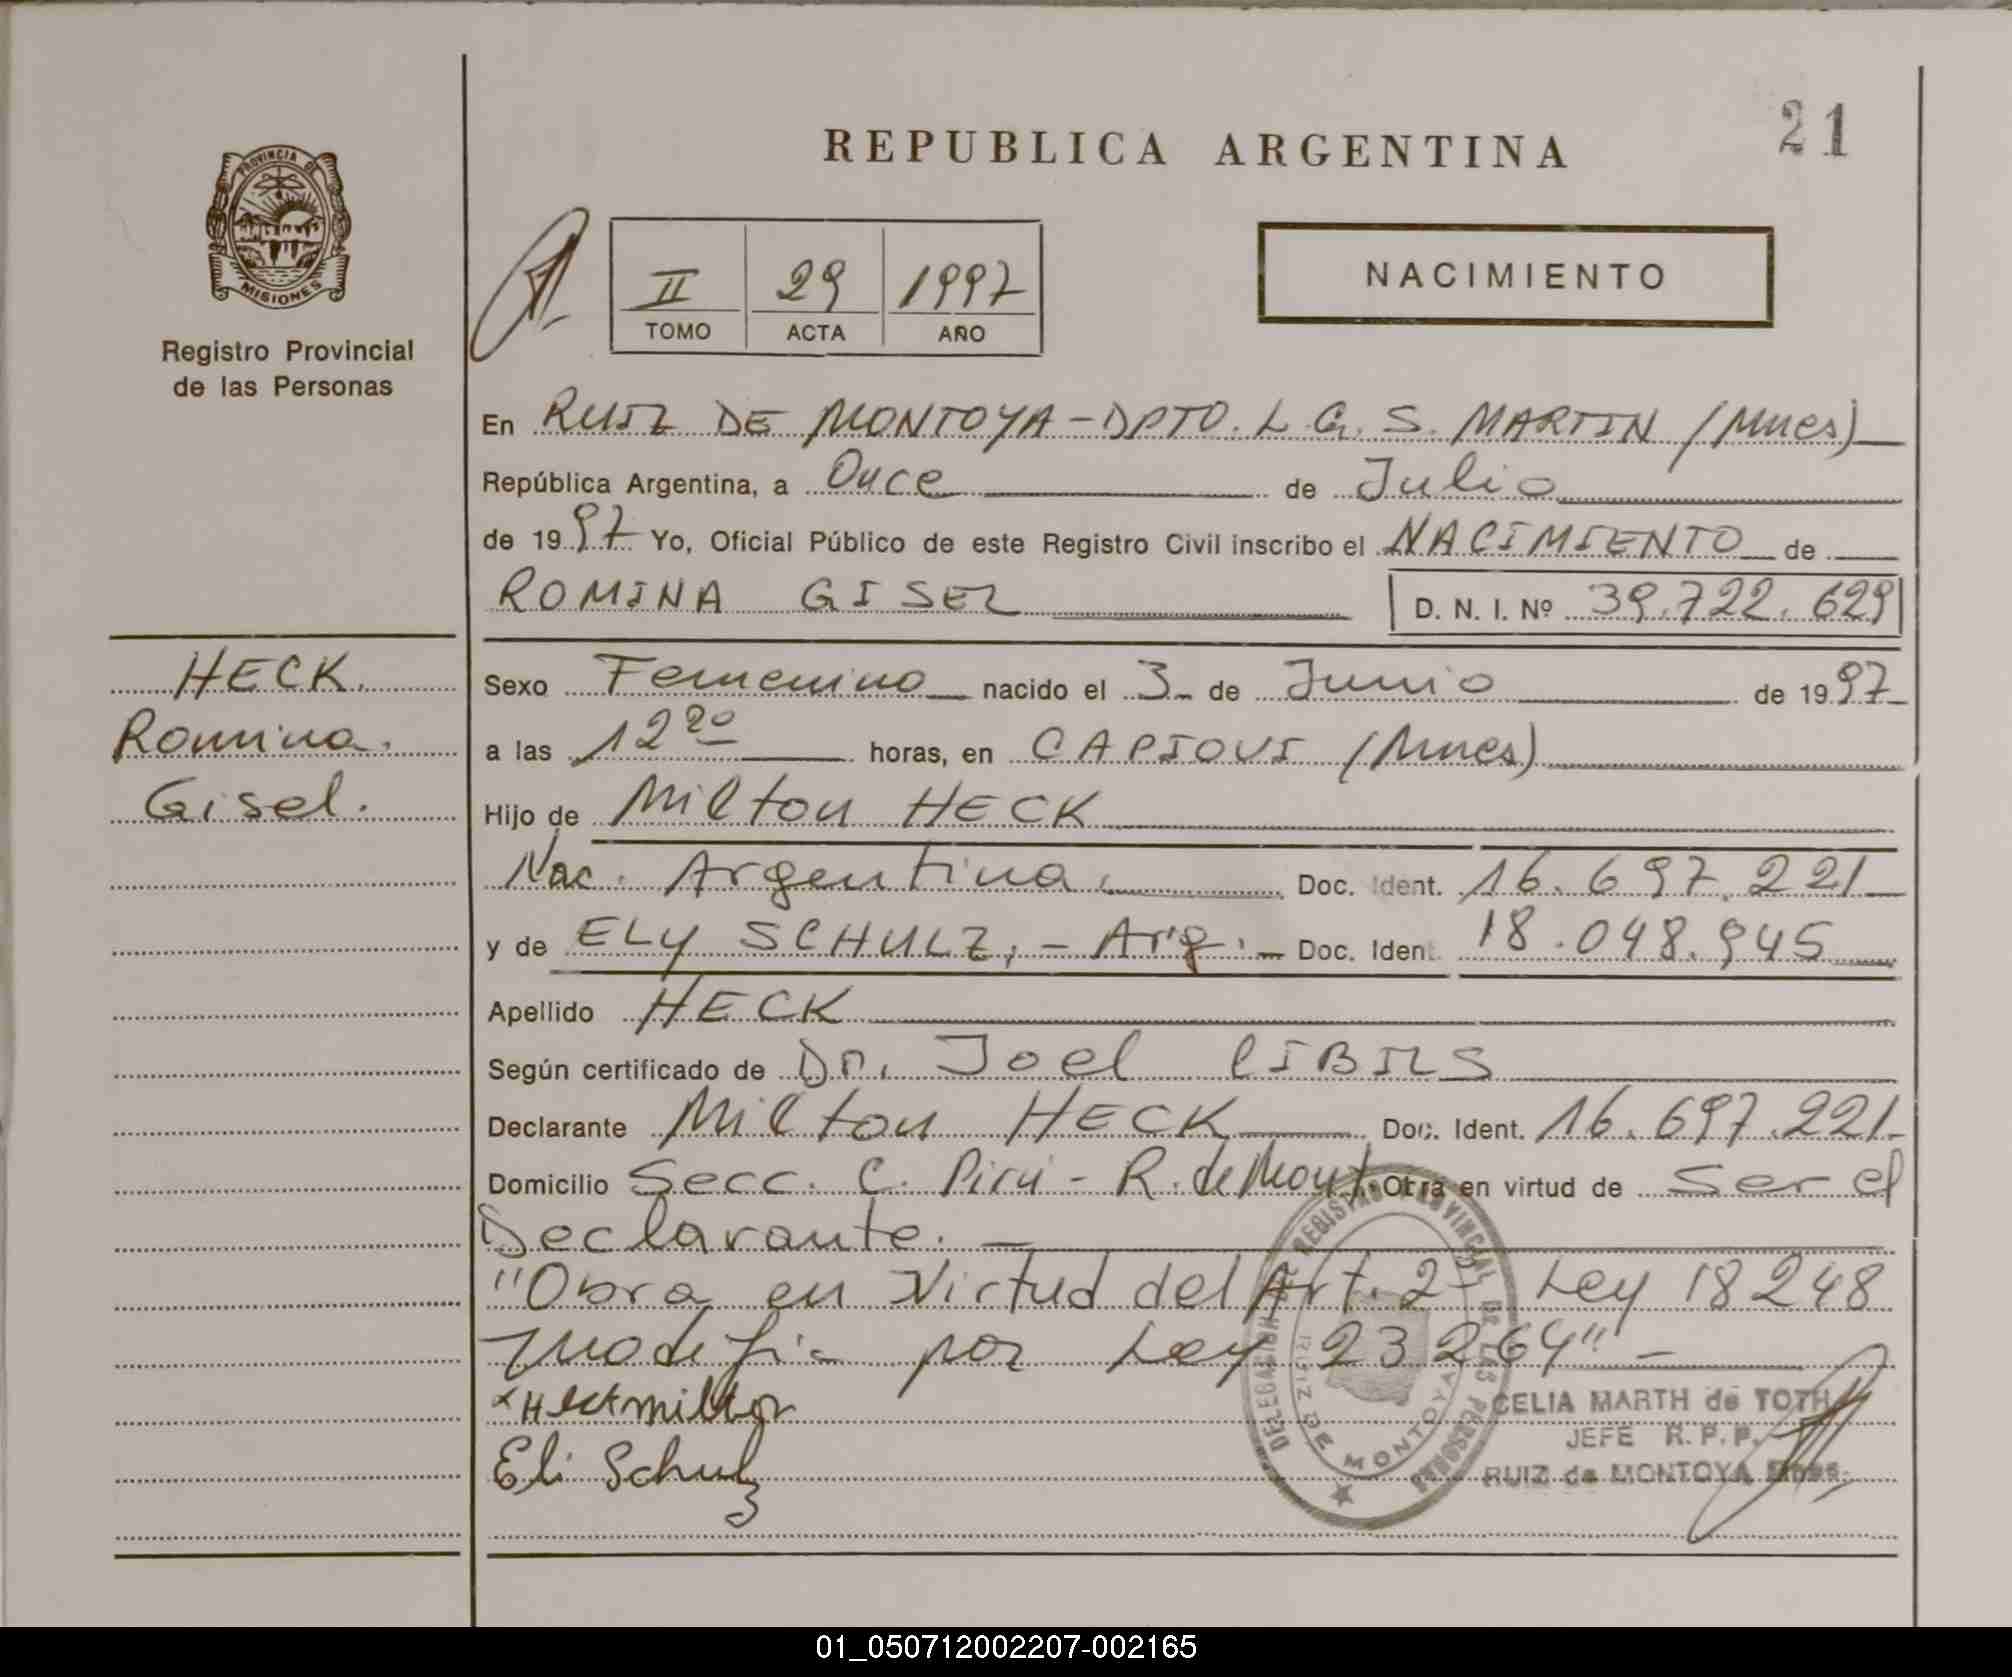 21
REPUBLICA ARGENTINA
PROVINCIA DE
MISIONES
Registro Provincial
de las Personas
II 29 1997
TOMO ACTA AÑO
NACIMIENTO
En RUIZ DE MONTOYA - DPTO. L. G. S. MARTIN (Mnes)
República Argentina, a Once de Julio
de 1997 Yo, Oficial Público de este Registro Civil inscribo el NACIMIENTO de
ROMINA GISEL D. N. I. Nº 39.722.629
HECK.
Romina.
Gisel.
Sexo Femenino nacido el 3 de Junio de 1997
a las 12 20 horas, en CAPIOVI (Mnes)
Hijo de Milton HECK
Nac. Argentina. Doc. Ident. 16.697.221
y de ELY SCHULZ, - Arg. - Doc. Ident. 18.048.945
Apellido HECK
Según certificado de Dr. Joel LIBILS
Declarante Milton HECK Doc. Ident. 16.697.221
Domicilio Secc. C. Pirú - R. de Mont. Obra en virtud de ser el
Declarante. -
"Obra en Virtud del Art. 2- Ley 18248
modifi- por Ley 23264" -
x Heck milton
Eli Schulz
DELEGACION DE REGISTRO PROVINCIAL DE LAS PERSONAS
RUIZ DE MONTOYA
CELIA MARTH de TOTH
JEFE R. P. P.
RUIZ de MONTOYA Mnes.
01_050712002207-002165